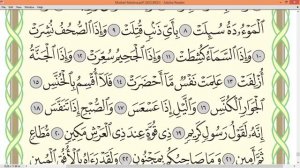 الْمَوْءُۥدَةُ سُئِلَتْ ٨ بِأَىِّ ذَنۢبٍ قُتِلَتْ ٩ وَإِذَا ٱلصُّحُفُ نُشِرَتْ
١٠ وَإِذَا ٱلسَّمَآءُ كُشِطَتْ ١١ وَإِذَا ٱلْجَحِيمُ سُعِّرَتْ ١٢ وَإِذَا ٱلْجَنَّةُ
أُزْلِفَتْ ١٣ عَلِمَتْ نَفْسٌ مَّآ أَحْضَرَتْ ١٤ فَلَآ أُقْسِمُ بِٱلْخُنَّسِ ١٥
ٱلْجَوَارِ ٱلْكُنَّسِ ١٦ وَٱلَّيْلِ إِذَا عَسْعَسَ ١٧ وَٱلصُّبْحِ إِذَا تَنَفَّسَ ١٨
إِنَّهُۥ لَقَوْلُ رَسُولٍ كَرِيمٍ ١٩ ذِى قُوَّةٍ عِندَ ذِى ٱلْعَرْشِ مَكِينٍ ٢٠ مُّطَاعٍ
ثَمَّ أَمِينٍ ٢١ وَمَا صَاحِبُكُم بِمَجْنُونٍ ٢٢ وَلَقَدْ رَءَاهُ بِٱلْأُفُقِ ٱلْمُبِينِ